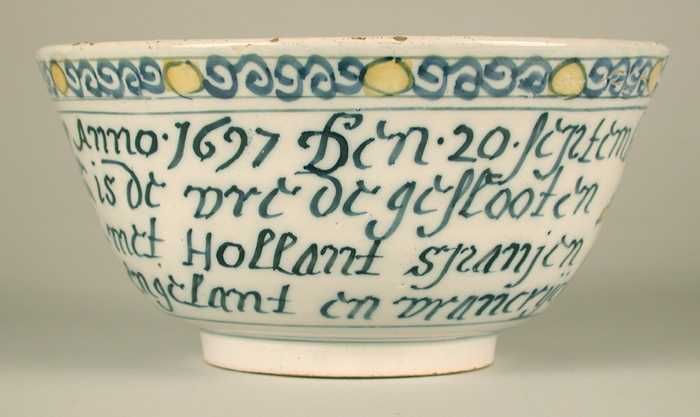 Anno · 1697 Den · 20 · septem
is de vre de geslooten
met Hollant spanjen
engelant en vrancry